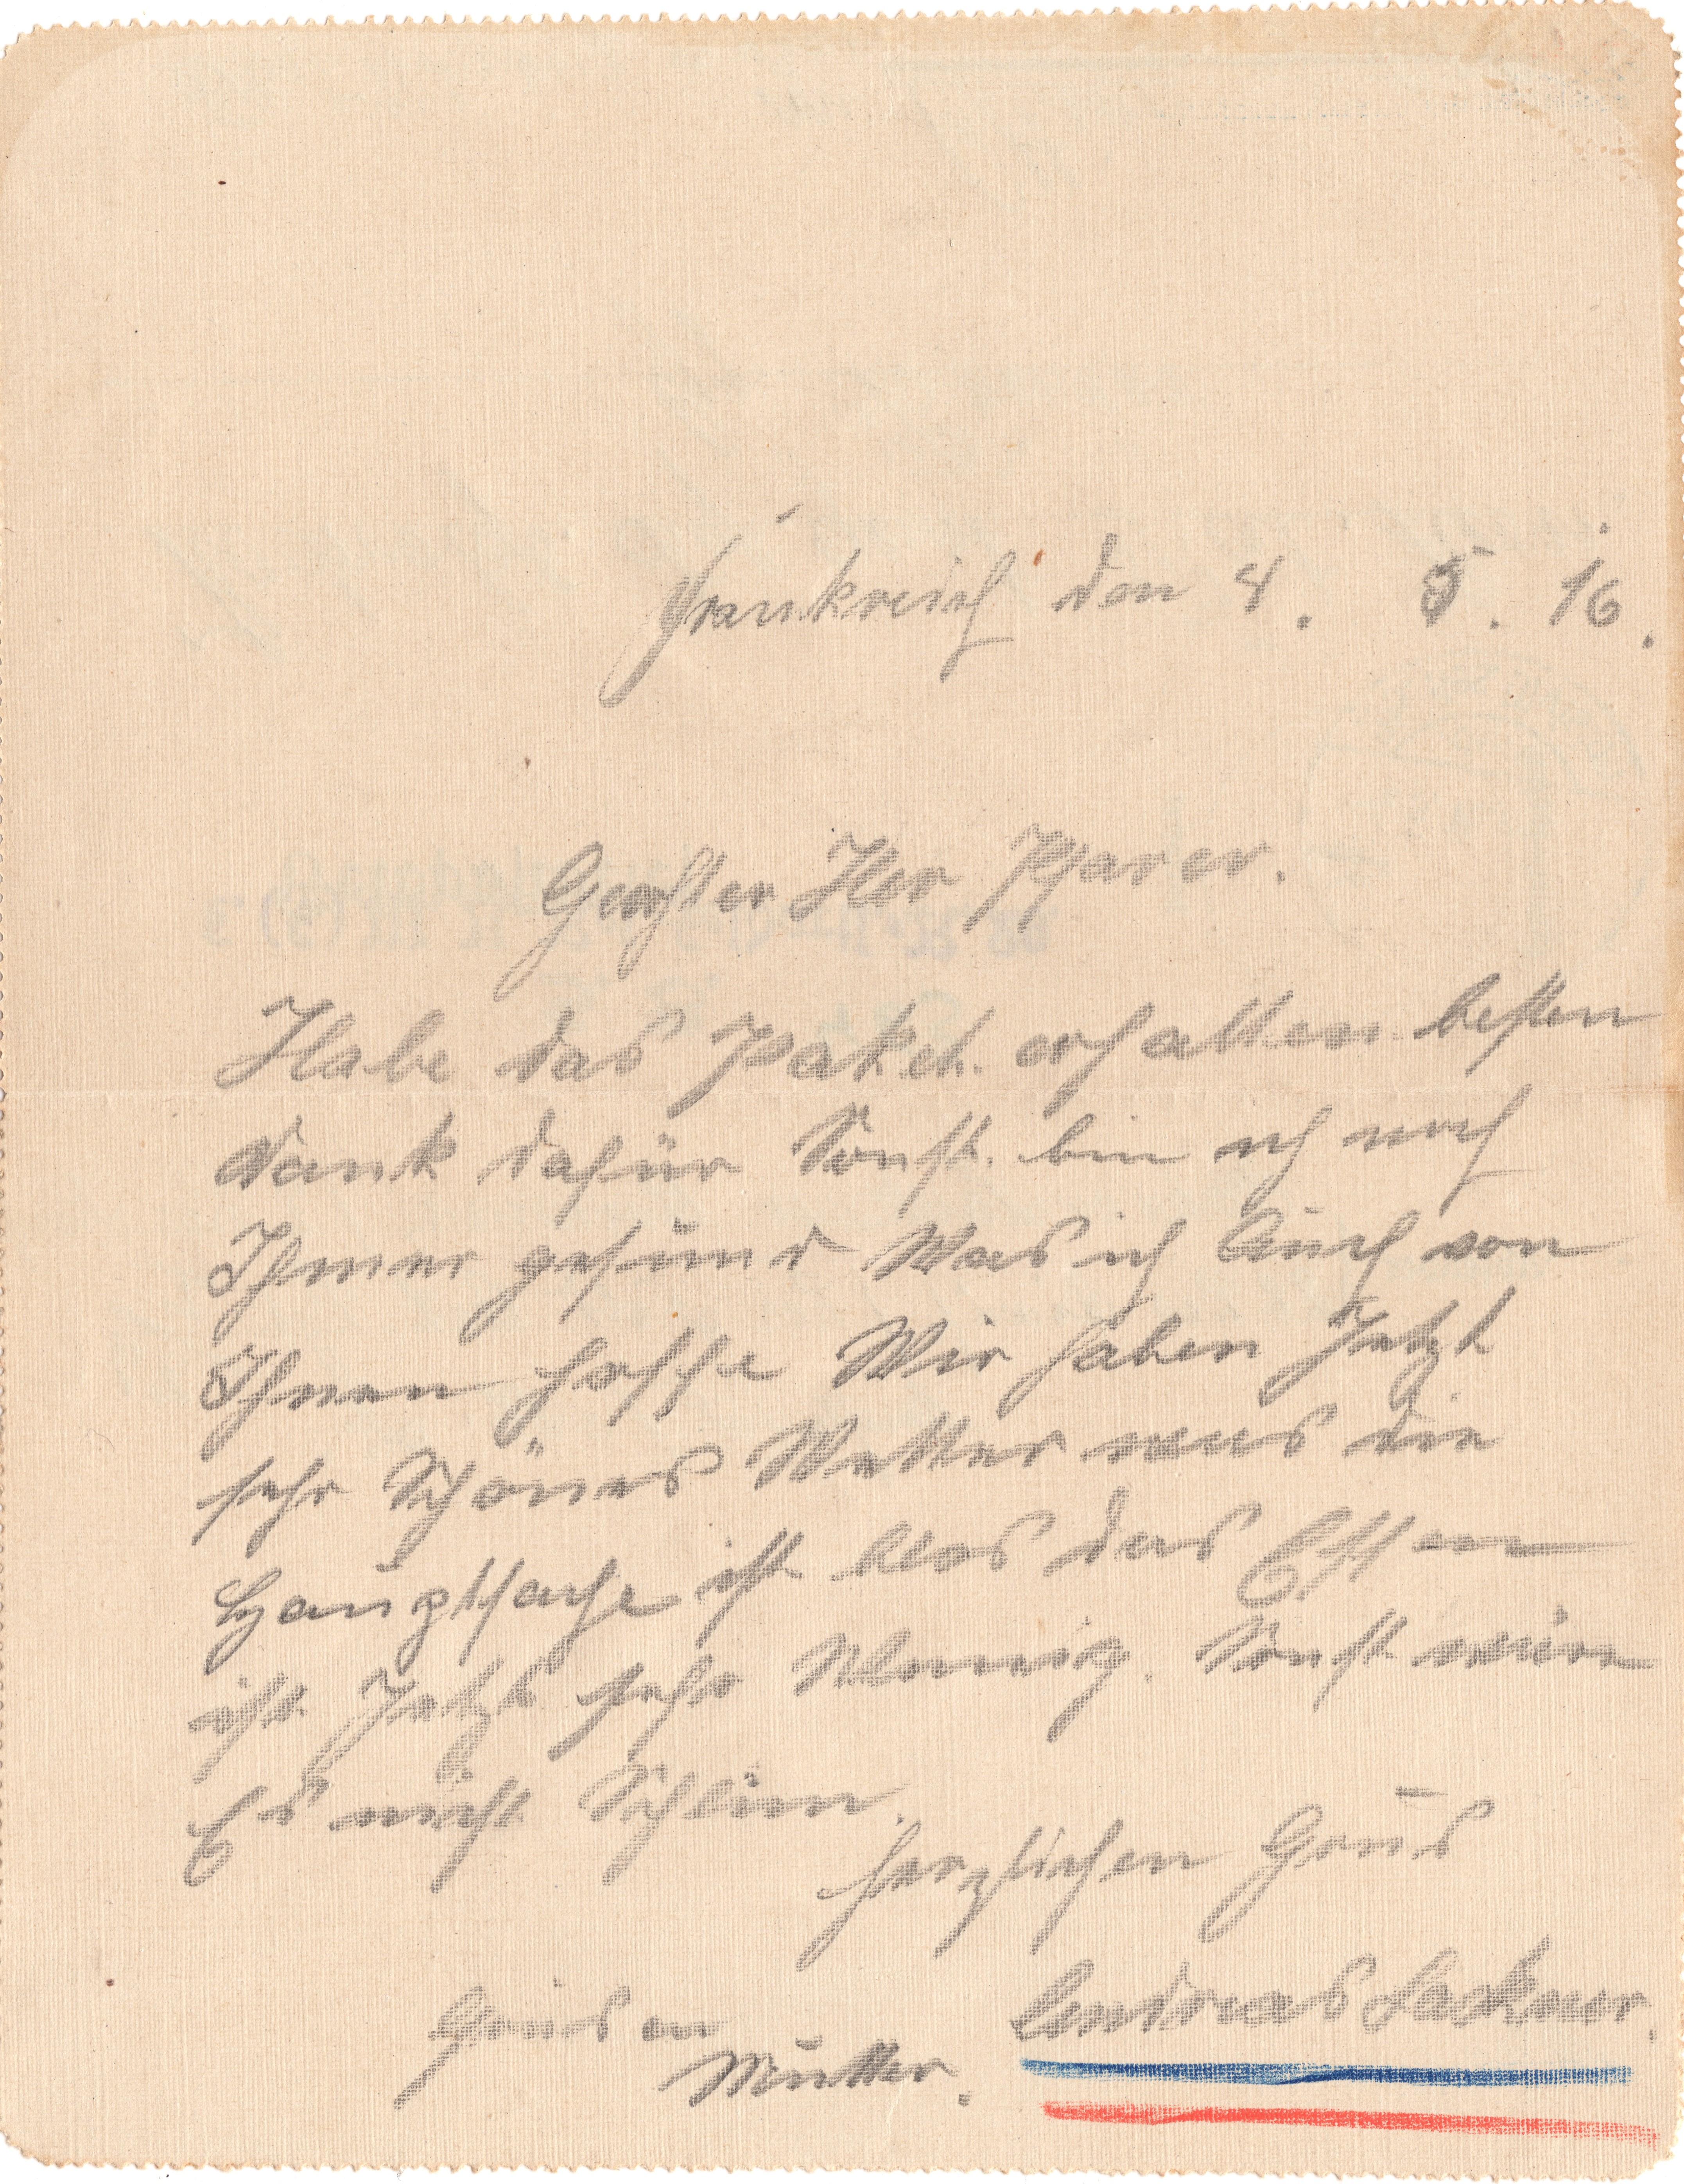 Frankreich den 4. 5. 16.
Geehrter Her Pfarer.
Habe das Paket erhalten besten
Dank dafür Sonst bin ich noch
Ihmer gesund Was ich Auch von
Ihnen hoffe Wir haben Jetzt
sehr Schönes Wetter was die
Hauptsache ist blos das Essen
ist Jetzt sehr Wennig. Sonst wäre
Es nicht Schlim.
Herzlichen Grus
Andreas Lackner.
Grus an
Mutter.